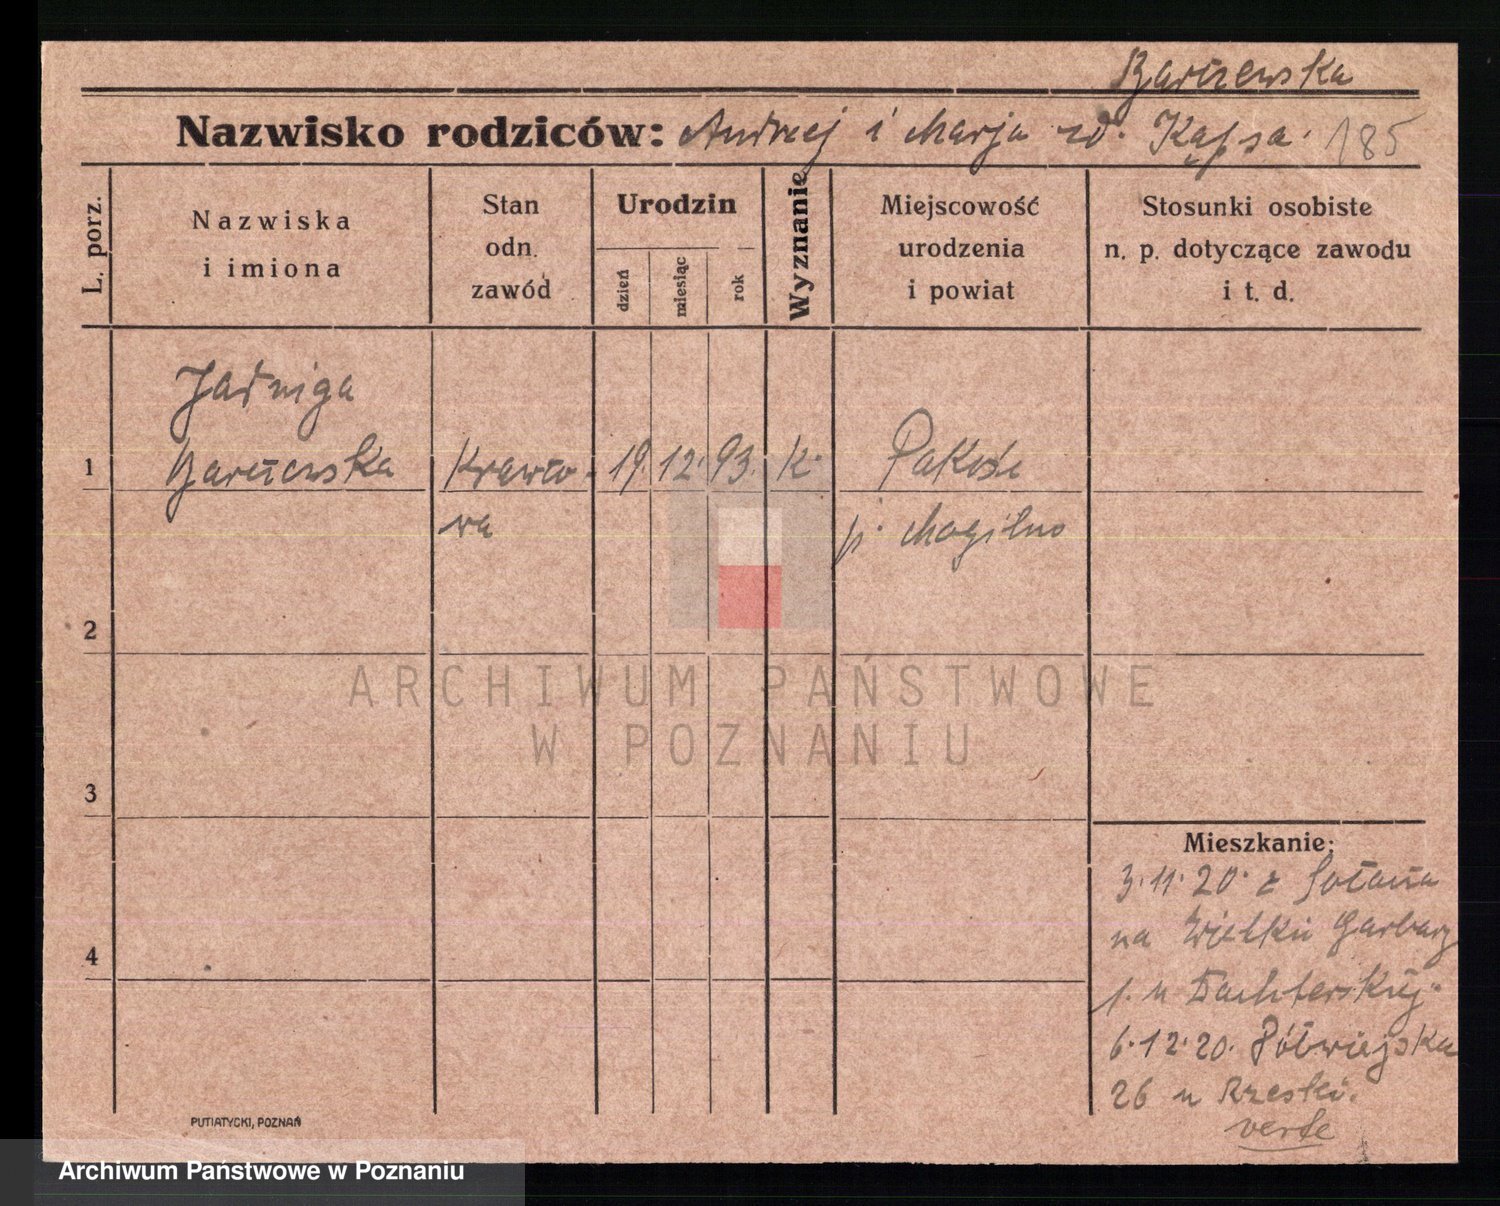 Barczewska
Nazwisko rodziców: Andrzej i Marja zd. Kąpsa. 185
L. porz.
Nazwiska
i imiona
Stan
odn.
zawód
Urodzin
dzień
miesiąc
rok
Wyznanie
Miejscowość
urodzenia
i powiat
Stosunki osobiste
n. p. dotyczące zawodu
i t. d.
Jadwiga
1 Barczewska Krawco- 19. 12. 93. K. Pakość
wa p. Mogilno
2
ARCHIWUM PAŃSTWOWE
W POZNANIU
3
Mieszkanie:
3.11.20. z
na Wielkie Garbary
4
1. u
6.12.20. Półwiejska
26 u Rzeski.
verte
PUTIATYCKI, POZNAŃ
Archiwum Państwowe w Poznaniu